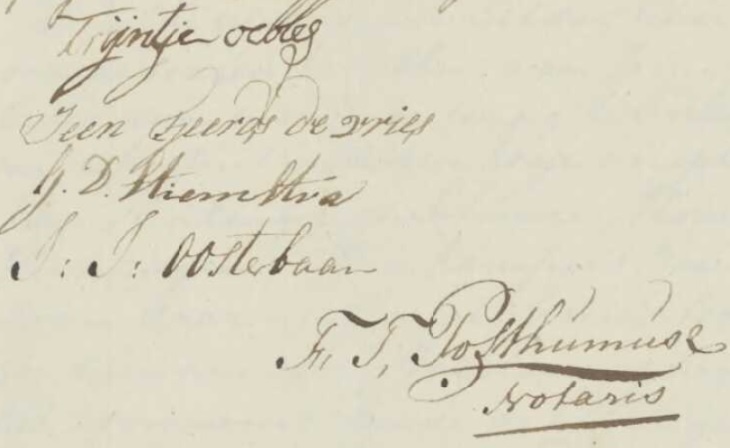 Trijntje ocoles
Teen sjeerds de vries
G. D. Stiemstra
J: J: Oosterbaan
F. T. Posthumus
Notaris